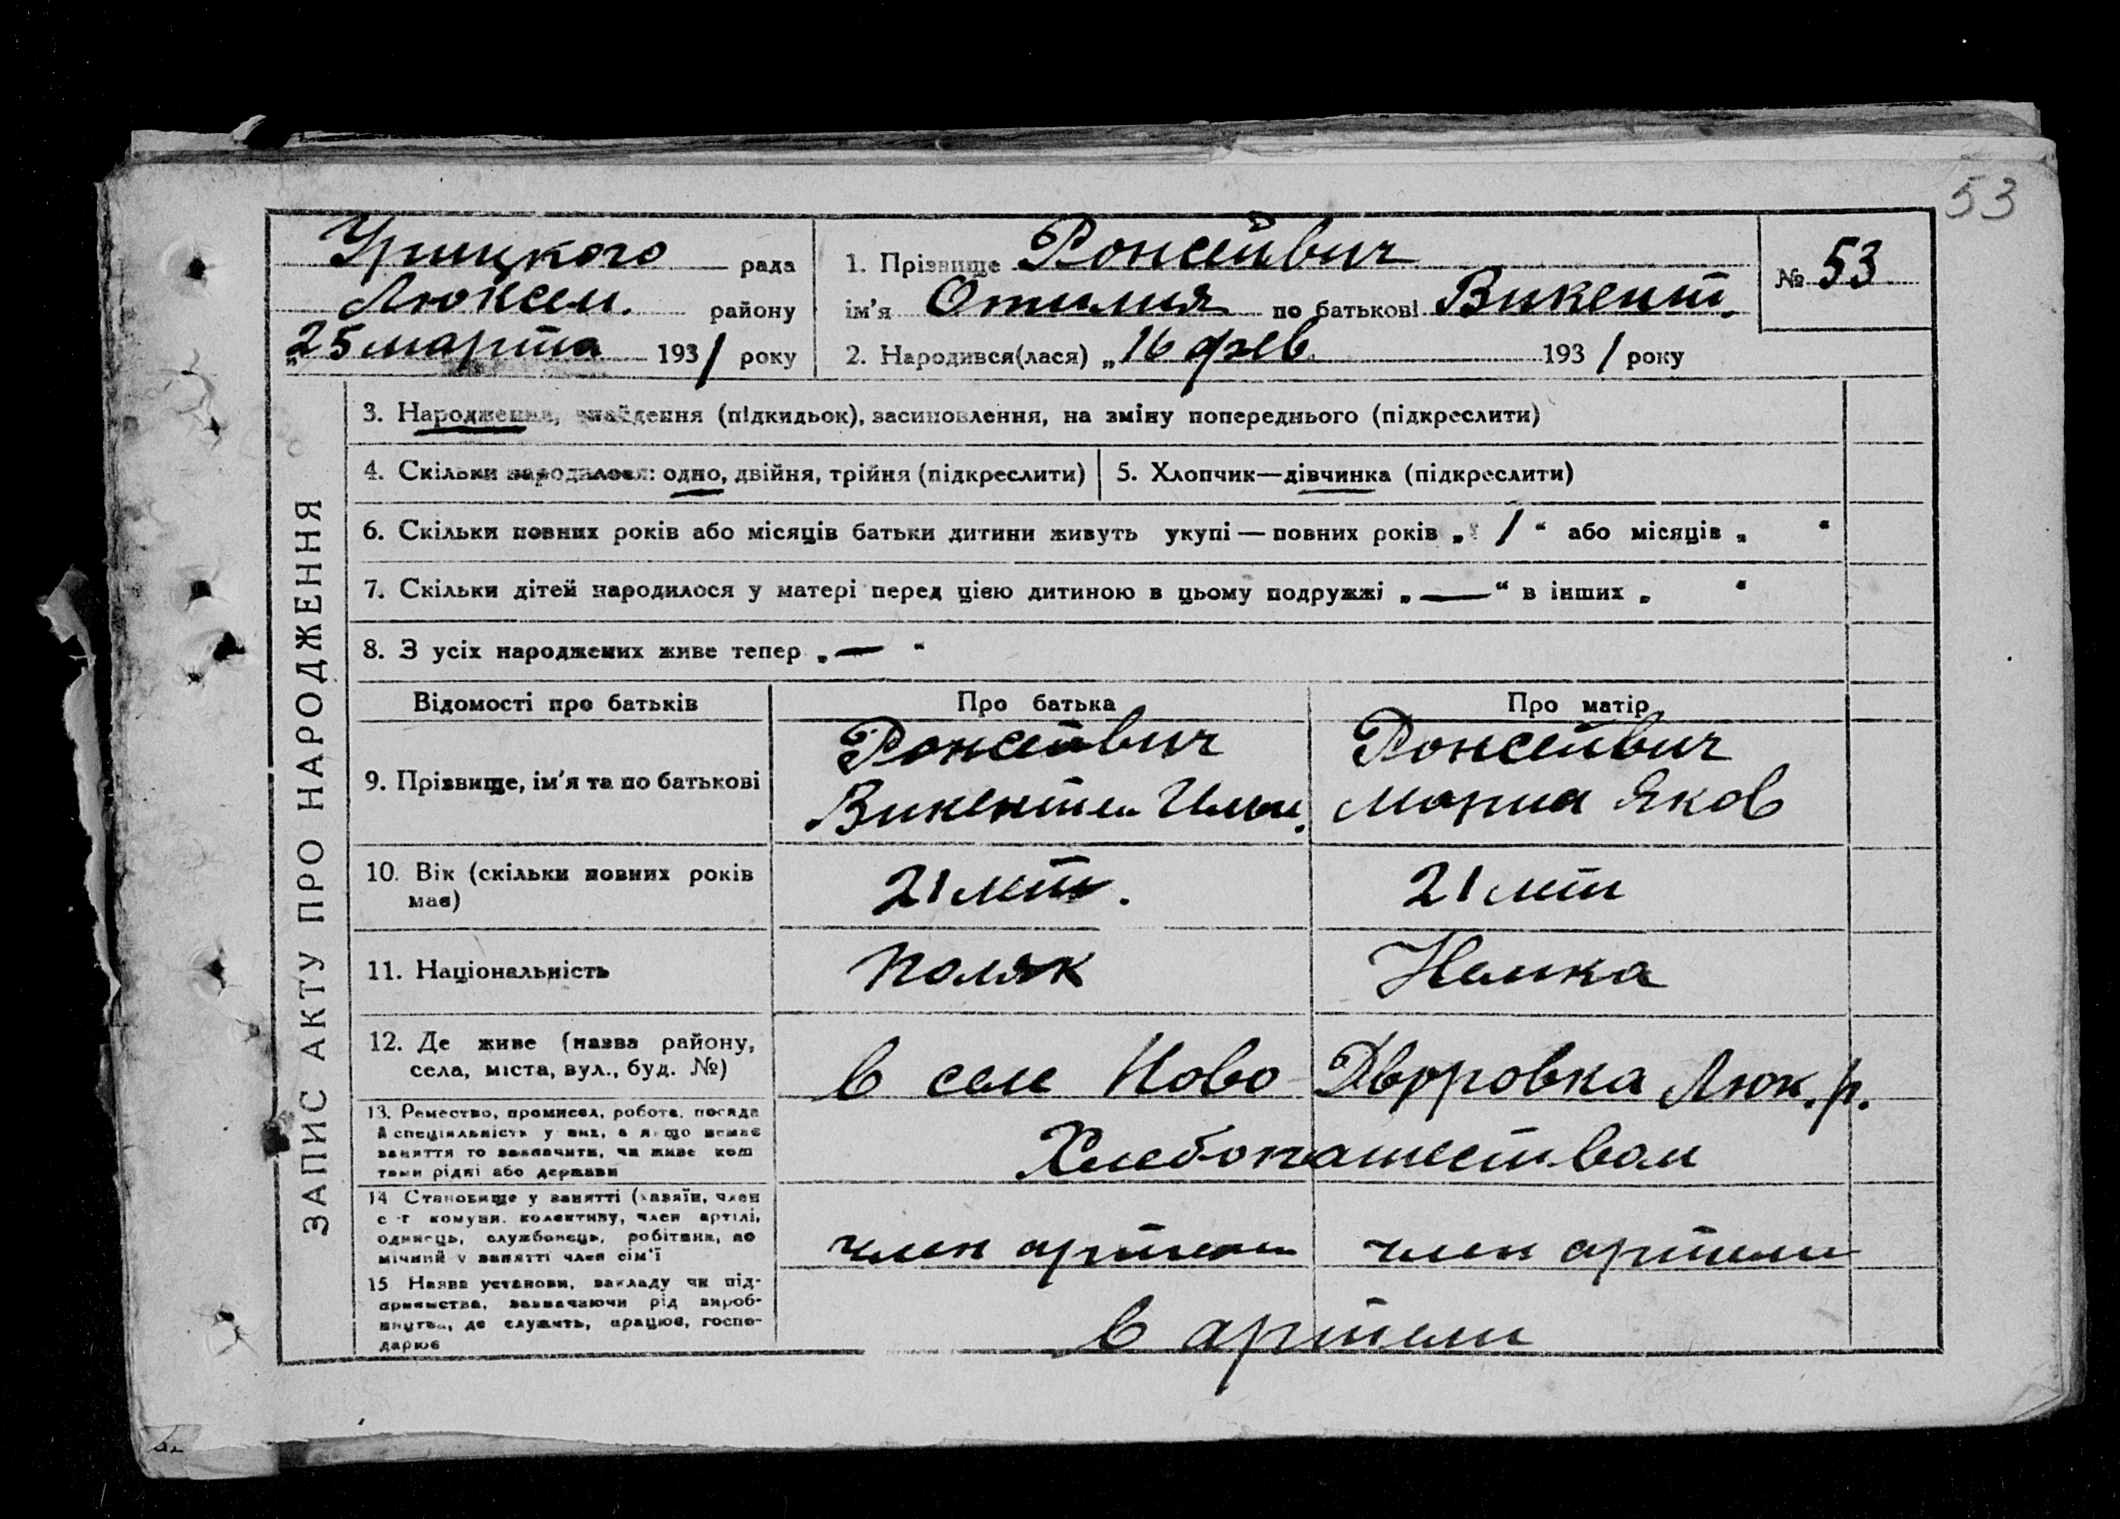 53
Урицкого рада
Люксем. району
„25 марта 1931 року
1. Прізвище Ронсейвич
ім'я Отилия по батькові Викент.
2. Народився(лася) „16 фев. 1931 року
№ 53
ЗАПИС АКТУ ПРО НАРОДЖЕННЯ
3. Народження, знайдення (підкидьок), засиновлення, на зміну попереднього (підкреслити)
4. Скільки народилося: одно, двійня, трійня (підкреслити)
5. Хлопчик—дівчинка (підкреслити)
6. Скільки повних років або місяців батьки дитини живуть укупі — повних років „ 1 “ або місяців „ “
7. Скільки дітей народилося у матері перед цією дитиною в цьому подружжі „ — “ в інших „ “
8. З усіх народжених живе тепер „ — “
Відомості про батьків
Про батька
Про матір
9. Прізвище, ім'я та по батькові
Ронсейвич
Викентий
Ронсейвич
Мария Яков
10. Вік (скільки повних років
має)
21 лет.
21 лет
11. Національність
поляк
Немка
12. Де живе (назва району,
села, міста, вул., буд. №)
в селе Ново Дворовка Люк. р.
13. Ремество, промисел, робота, посада
й спеціяльність у них, а якщо немає
заняття то зазначити, чи живе кош
тами рідні або держави
Хлебопашеством
14 Становище у занятті (хазяїн, член
с-г комуни, колективу, член артілі,
одинець, службовець, робітник, по
мічний у занятті член сім'ї
член артели
член артели
15 Назва установи, закладу чи під-
приємства, зазначаючи рід вироб-
ництва, де служить, працює, госпо-
дарює
в артели